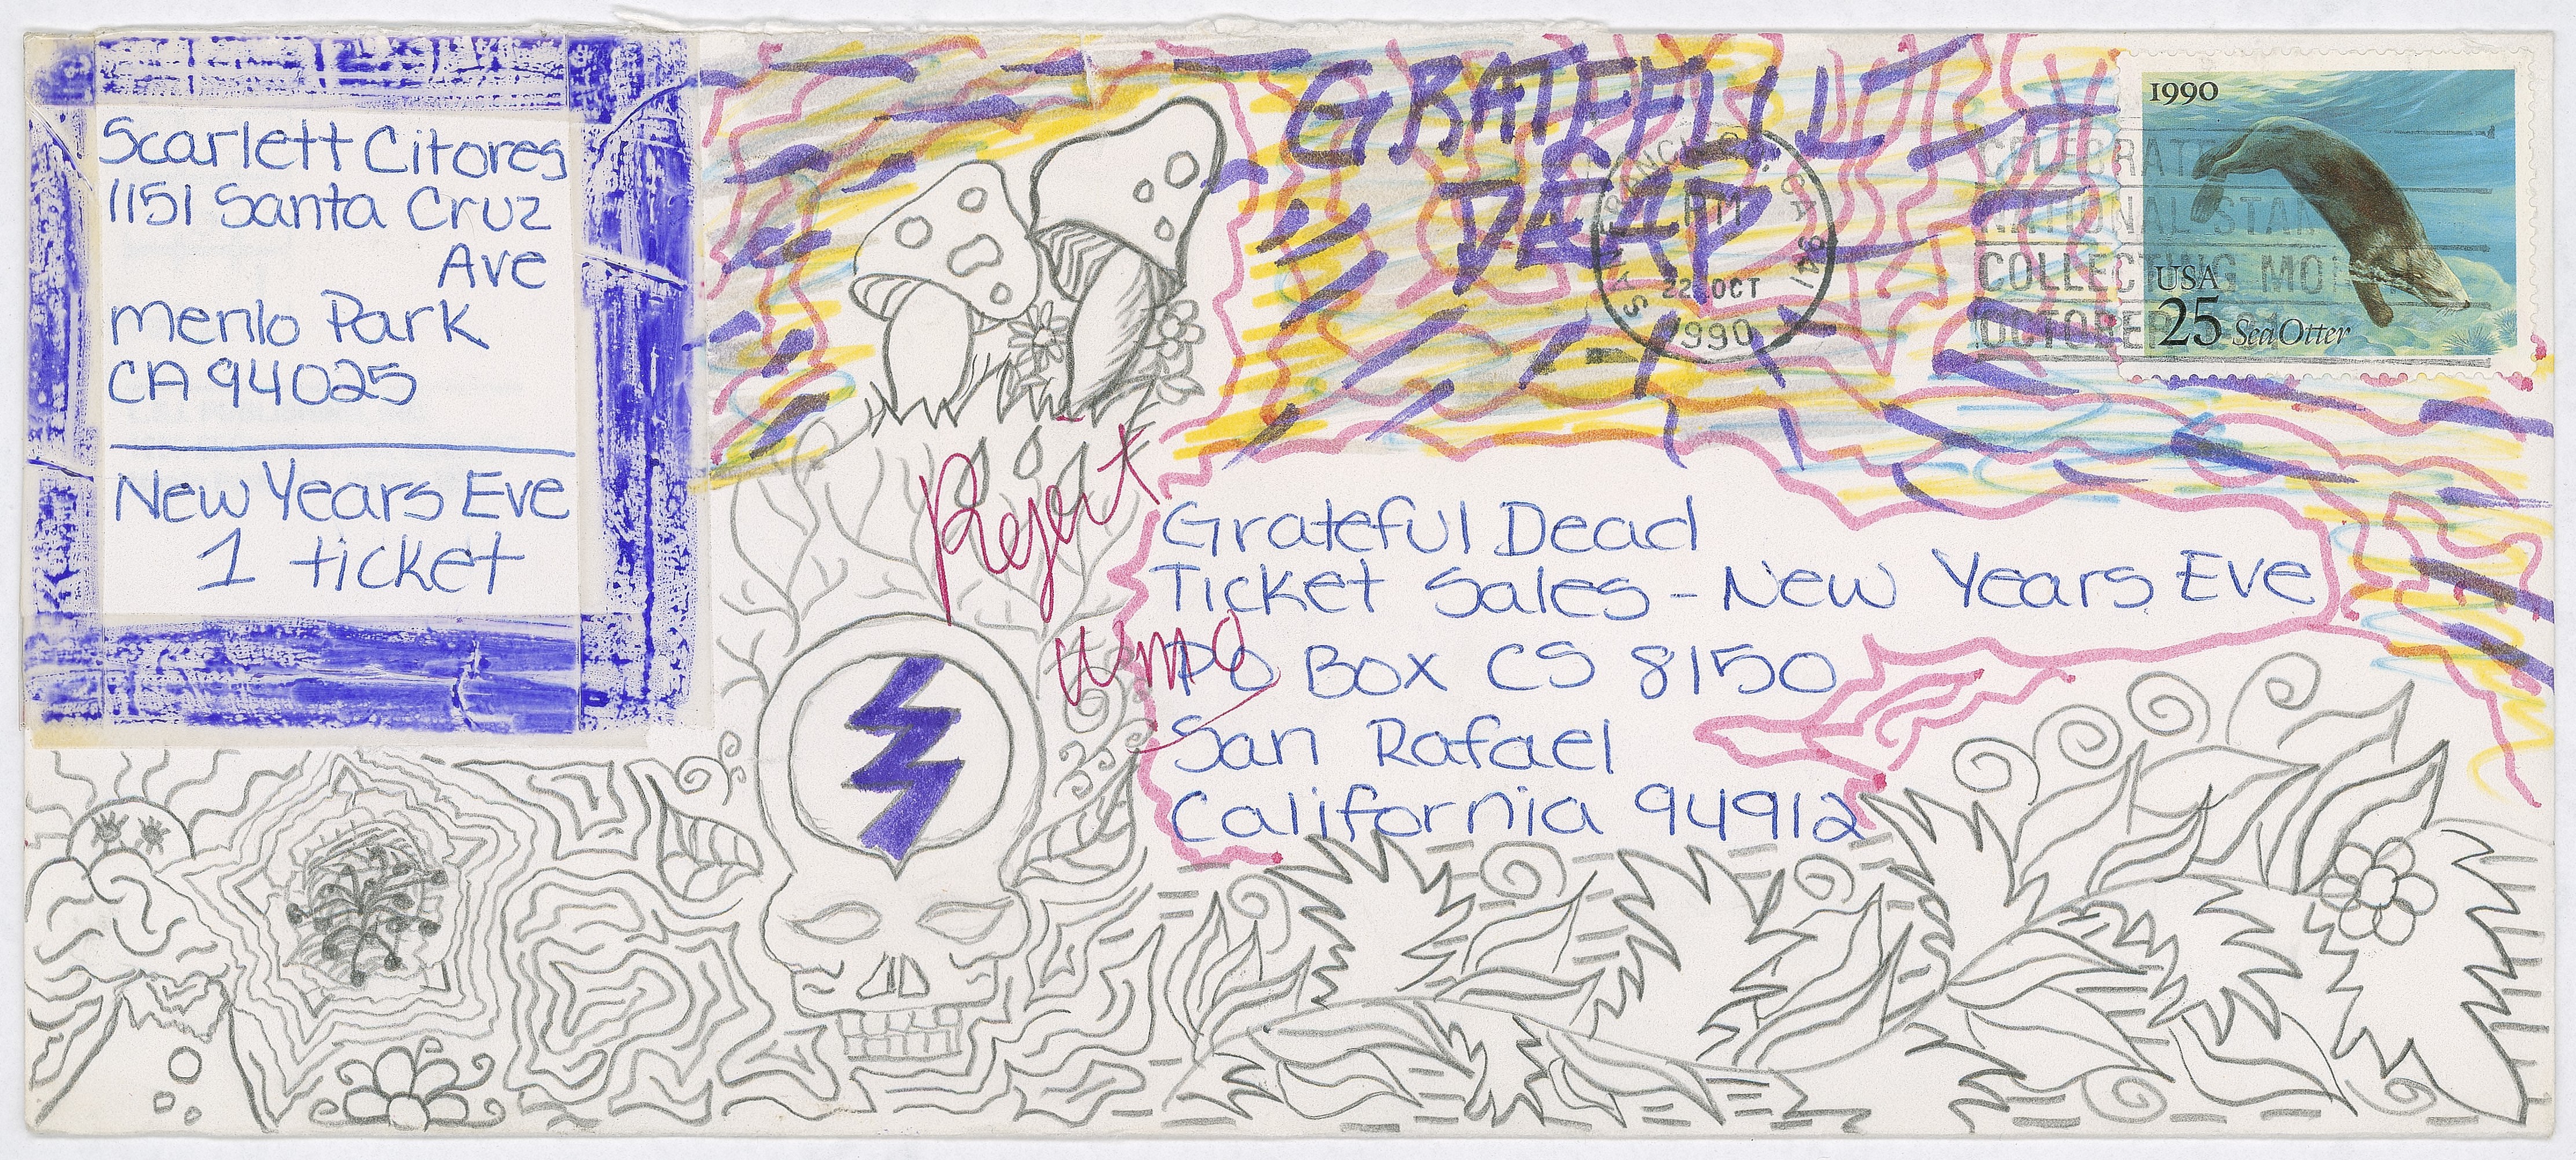 Scarlett Citores
1151 Santa Cruz
Ave
Menlo Park
CA 94025
New Years Eve
1 ticket
GRATEFUL
DEAD
PM
22 OCT
1990
CELEBRATE
NATIONAL STAMP
COLLECTING MONTH
OCTOBER
1990
USA
25 Sea Otter
Reject
Wmd
Grateful Dead
Ticket Sales - New Years Eve
PO Box CS 8150
San Rafael
California 94912